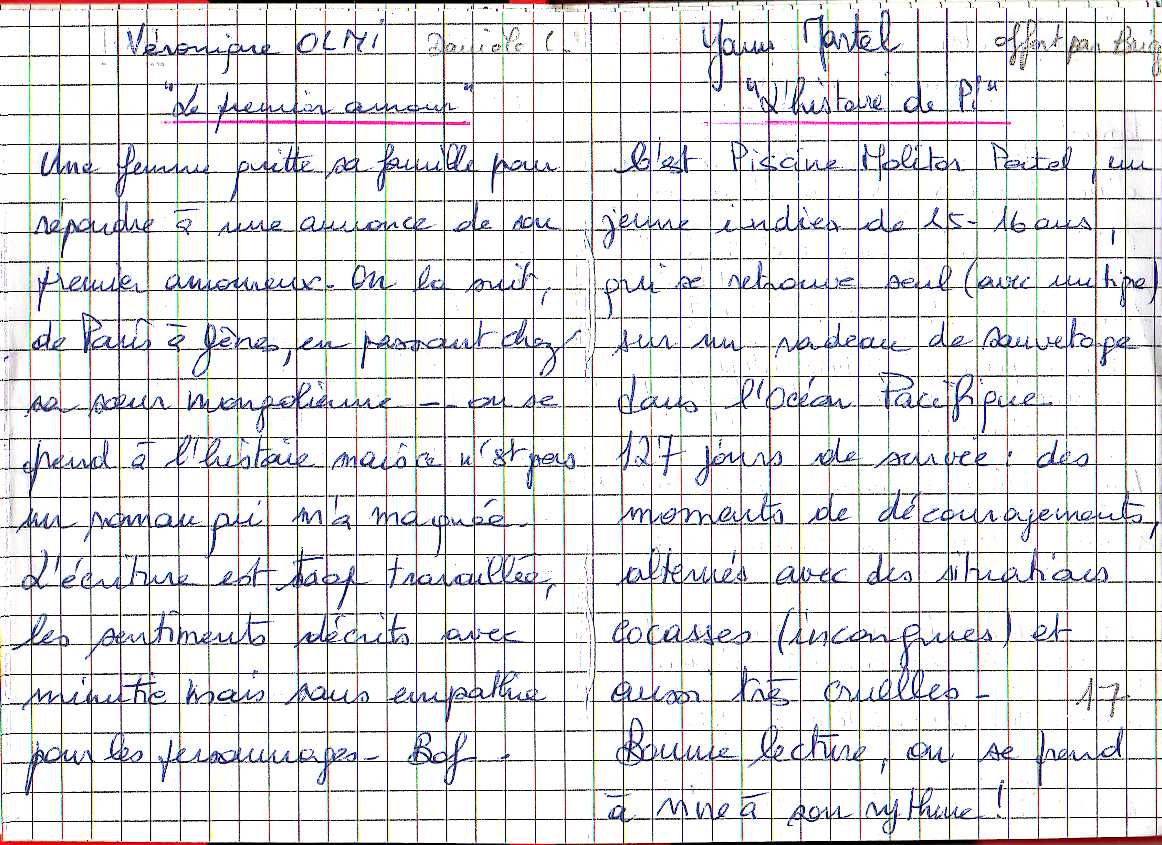 Véronique OLMI Danièle C.
"Le premier amour"
Une femme quitte sa famille pour
répondre à une annonce de son
premier amoureux. On la suit,
de Paris à Gênes, en passant chez
sa sœur mongolienne -- on se
prend à l'histoire mais ce n'est pas
un roman qui m'a marquée.
L'écriture est trop travaillée,
les sentiments décrits avec
minutie mais sans empathie
pour les personnages - Bof -
Yann Martel offert par Brig
"L'histoire de Pi"
C'est Piscine Molitor Patel, un
jeune indien de 15-16 ans,
qui se retrouve seul (avec un tigre)
sur un radeau de sauvetage
dans l'Océan Pacifique.
127 jours de survie : des
moments de découragements,
alternés avec des situations
cocasses (incongrues) et
aussi très cruelles - 17
Bonne lecture, on se prend
à vivre à son rythme !